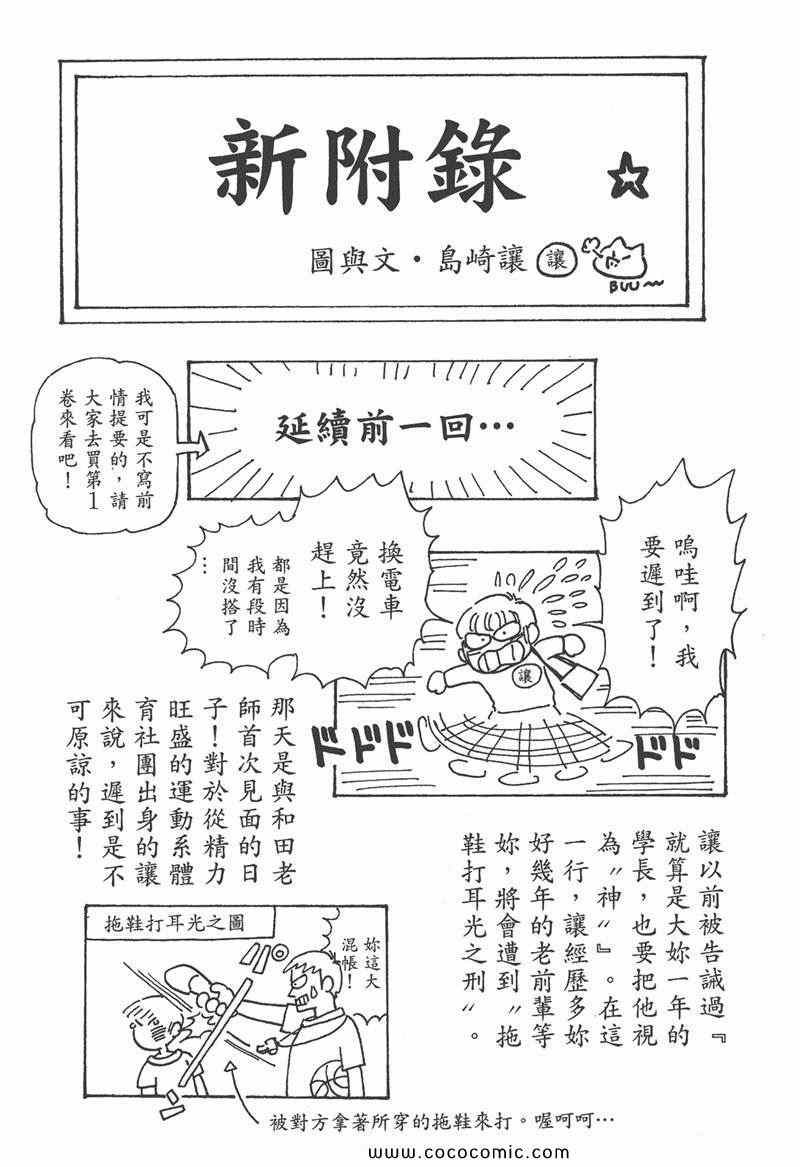 新附錄 ☆
圖與文・島崎讓 讓
BUU~~
延續前一回…
我可是不寫前
情提要的，請
大家去買第1
卷來看吧！
嗚哇啊，我
要遲到了！
換電車
竟然沒
趕上！
都是因為
我有段時
間沒搭了
…
讓
ドドド
ドド
那天是與和田老
師首次見面的日
子！對於從精力
旺盛的運動系體
育社團出身的讓
來說，遲到是不
可原諒的事！
讓以前被告誡過『
就算是大妳一年的
學長，也要把他視
為〝神〞』。在這
一行，讓經歷多妳
好幾年的老前輩等
妳，將會遭到〝拖
鞋打耳光之刑〞。
拖鞋打耳光之圖
妳這大
混帳！
被對方拿著所穿的拖鞋來打。喔呵呵…
www.cococomic.com